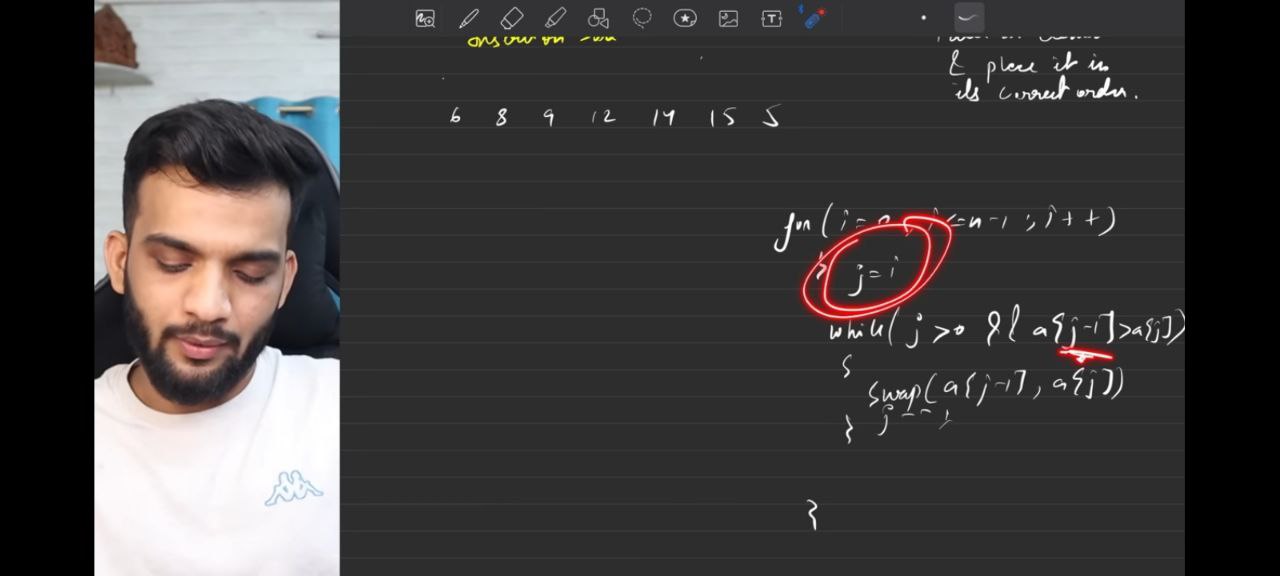 & place it in
its correct order.
6 8 9 12 14 15 5
for (i = 0 ; i <= n-1 ; i++)
{ j = i
while( j > 0 && a[j-1] > a[j])
{
swap(a[j-1], a[j])
j--;
}
}